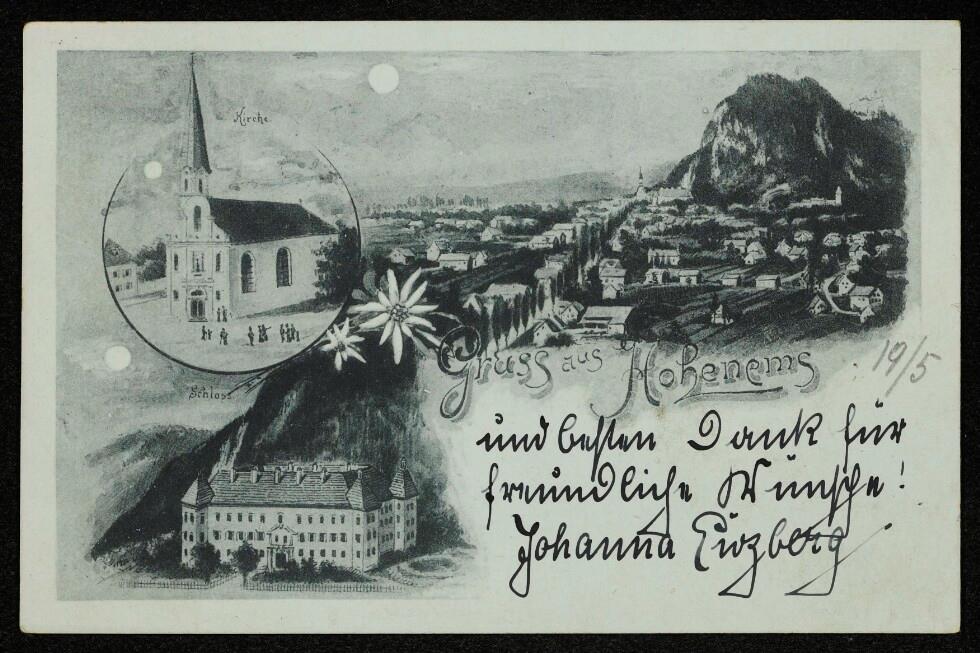 Kirche
Schloss
Gruss aus Hohenems
19/5
und besten Dank für
freundliche Wünsche!
Johanna